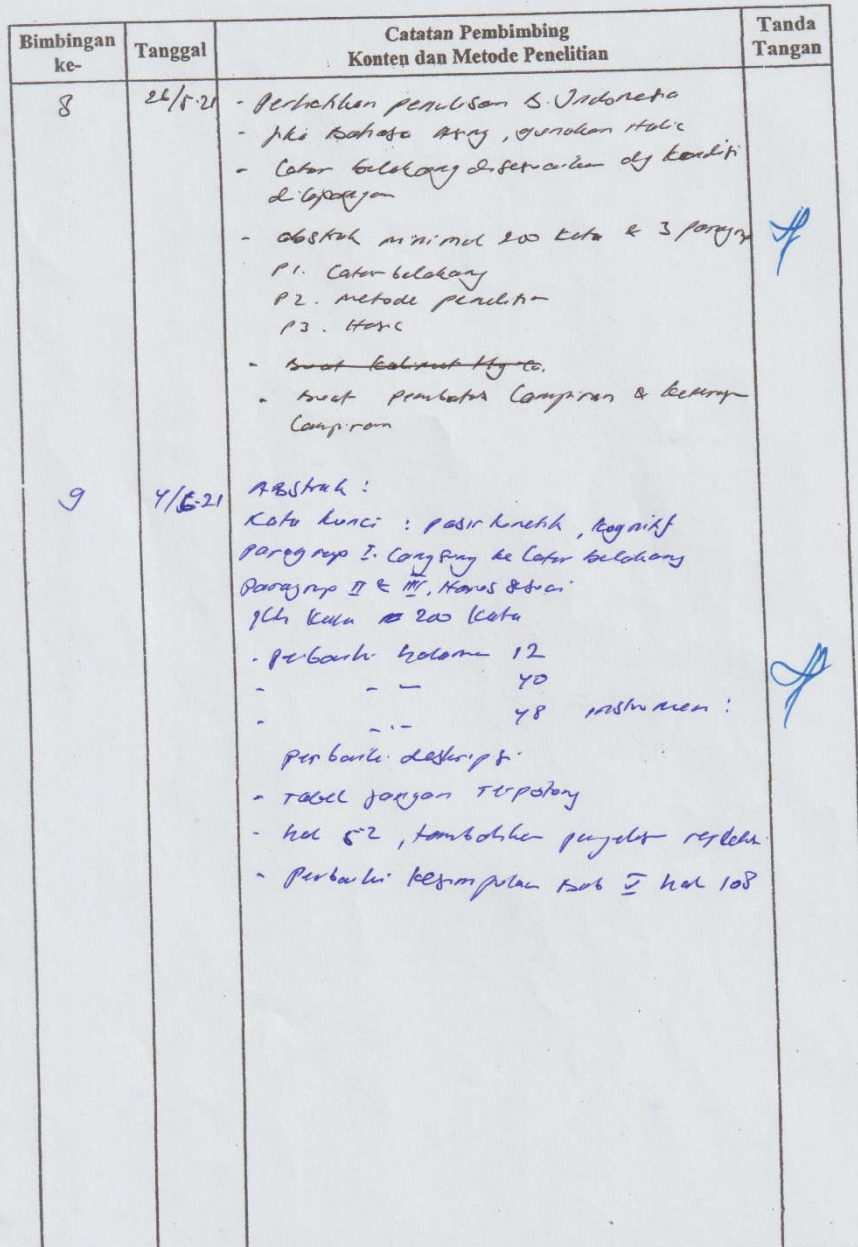 Bimbingan ke-
Tanggal
Catatan Pembimbing
Konten dan Metode Penelitian
Tanda Tangan
8
26/5-21
- Perhatikan penulisan B. Indonesia
- jika Bahasa Asing, gunakan Italic
- Latar belakang disesuaikan dg kondisi
di lapangan
- abstrak minimal 200 kata & 3 paragrap
P1. Latar belakang
P2. Metode penelitian
P3. Hasil
- Buat kalimat
- Buat pembatas Lampiran &
Lampiran
9
4/6-21
Abstrak :
Kata kunci : pasir kinetik, kognitif
Paragrap I. Langsung ke Latar belakang
Paragrap II & III, Harus sesuai
jlh kata 200 kata
- perbaiki halaman 12
- - - 40
- - . - 48 instrumen :
perbaiki deskripsi.
- Tabel jangan Terpotong
- hal 52, tambahkan refleksi.
- Perbaiki kesimpulan Bab V hal 108